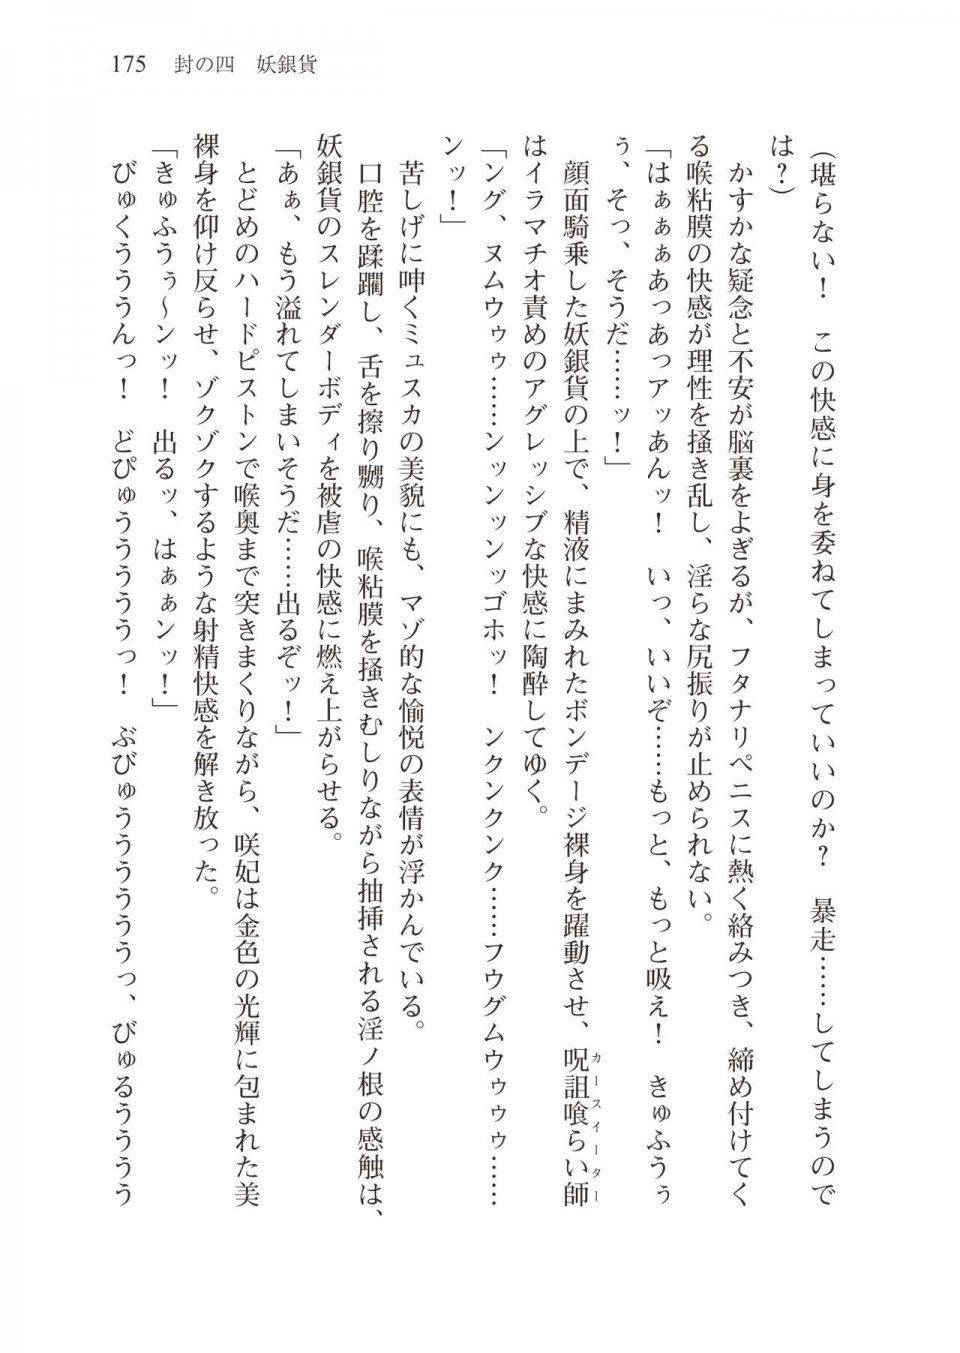 175　封の四　妖銀貨
（堪らない！　この快感に身を委ねてしまっていいのか？　暴走……してしまうので
は？）
かすかな疑念と不安が脳裏をよぎるが、フタナリペニスに熱く絡みつき、締め付けてく
る喉粘膜の快感が理性を掻き乱し、淫らな尻振りが止められない。
「はぁぁぁあっあっアッあんッ！　いっ、いいぞ……もっと、もっと吸え！　きゅふうぅ
ぅ、そっ、そうだ……ッ！」
顔面騎乗した妖銀貨の上で、精液にまみれたボンデージ裸身を躍動させ、呪詛喰らい師
カースイーター
はイラマチオ責めのアグレッシブな快感に陶酔してゆく。
「ング、ヌムウゥゥ……ンッンッンッゴホッ！　ンクンクンク……フウグムウゥゥゥ……
ンッ！」
苦しげに呻くミュスカの美貌にも、マゾ的な愉悦の表情が浮かんでいる。
口腔を蹂躙し、舌を擦り嬲り、喉粘膜を掻きむしりながら抽挿される淫ノ根の感触は、
妖銀貨のスレンダーボディを被虐の快感に燃え上がらせる。
「あぁ、もう溢れてしまいそうだ……出るぞッ！」
とどめのハードピストンで喉奥まで突きまくりながら、咲妃は金色の光輝に包まれた美
裸身を仰け反らせ、ゾクゾクするような射精快感を解き放った。
「きゅふうぅ～ンッ！　出るッ、はぁぁンッ！」
びゅくうううんっ！　どぴゅうううううっ！　ぶびゅうううううっ、びゅるうううう